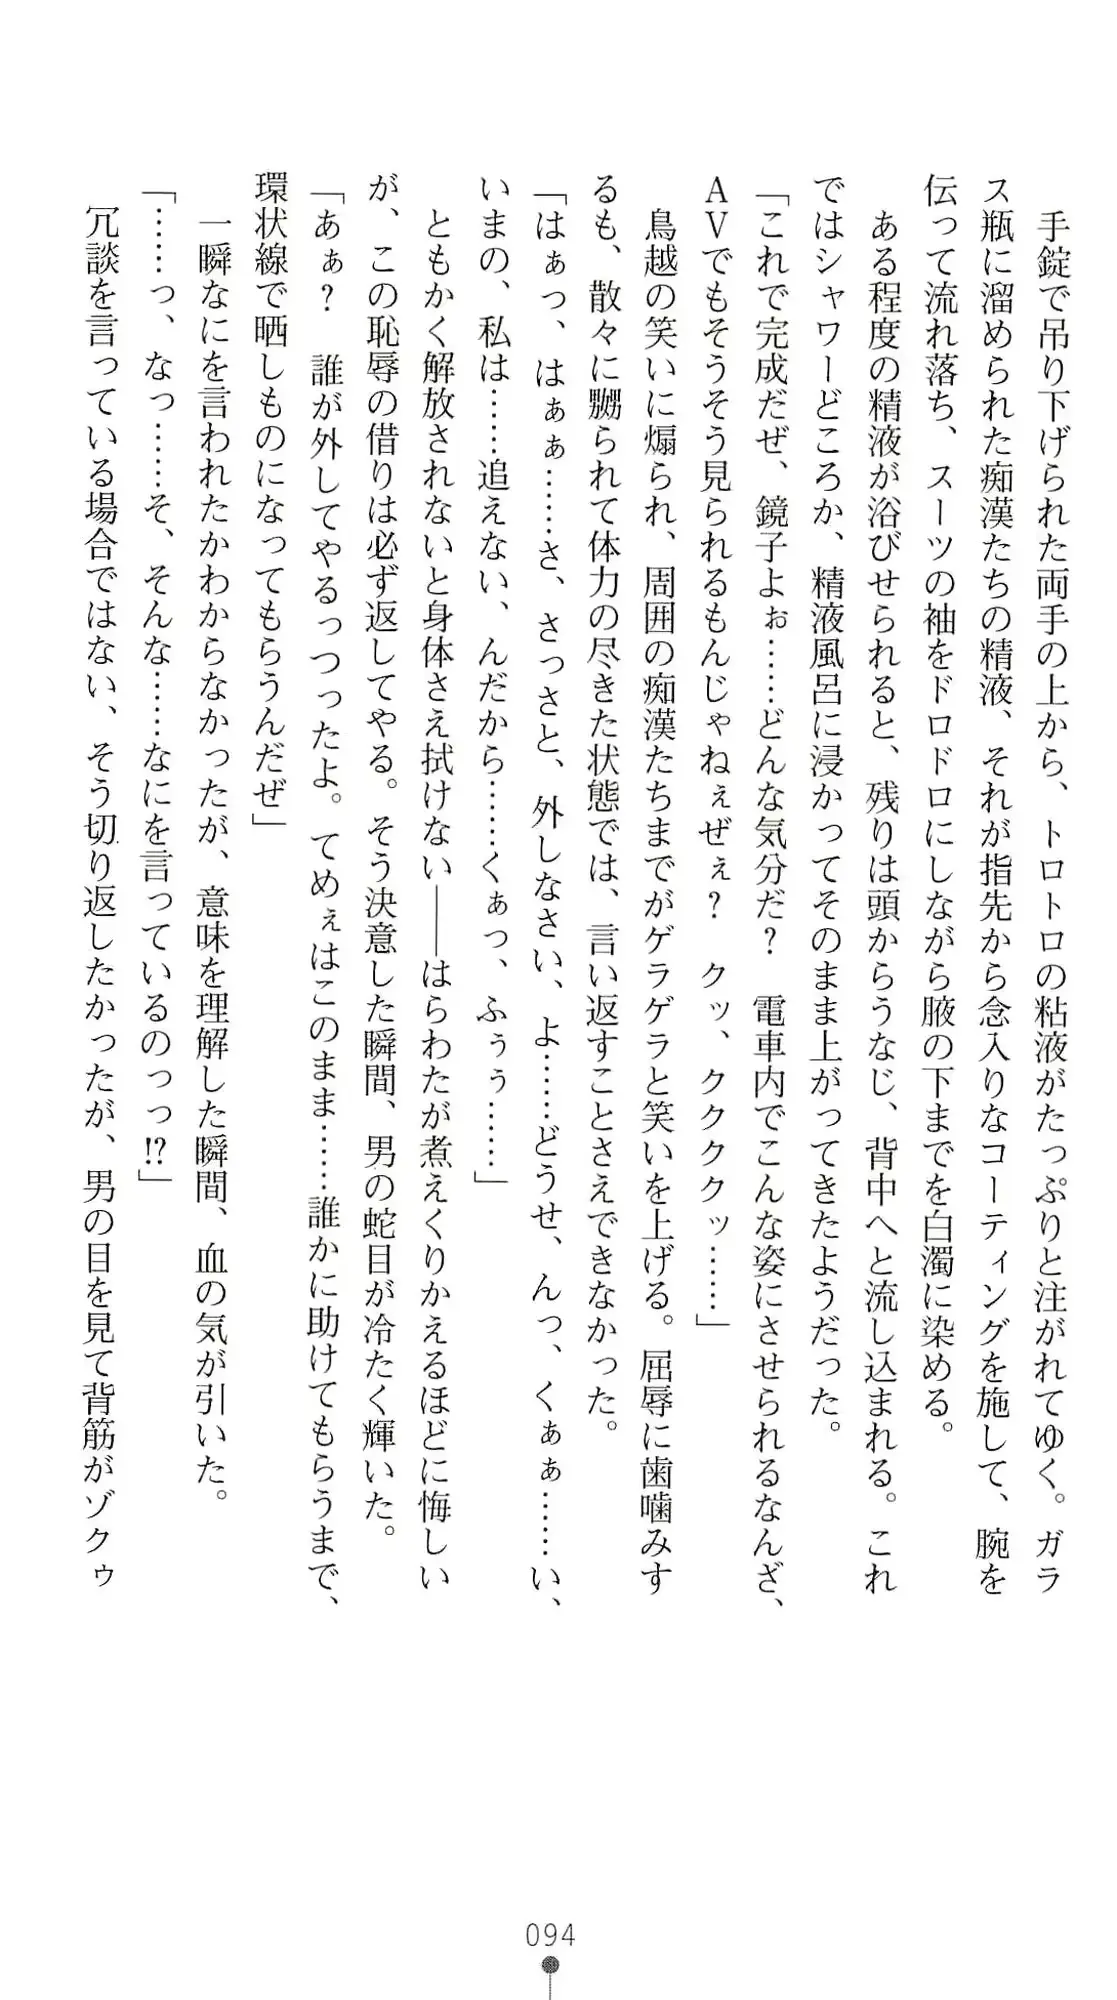 手錠で吊り下げられた両手の上から、トロトロの粘液がたっぷりと注がれてゆく。ガラ
ス瓶に溜められた痴漢たちの精液、それが指先から念入りなコーティングを施して、腕を
伝って流れ落ち、スーツの袖をドロドロにしながら腋の下までを白濁に染める。
ある程度の精液が浴びせられると、残りは頭からうなじ、背中へと流し込まれる。これ
ではシャワーどころか、精液風呂に浸かってそのまま上がってきたようだった。
「これで完成だぜ、鏡子よぉ……どんな気分だ？　電車内でこんな姿にさせられるなんざ、
ＡＶでもそうそう見られるもんじゃねぇぜぇ？　クッ、クククッ……」
鳥越の笑いに煽られ、周囲の痴漢たちまでがゲラゲラと笑いを上げる。屈辱に歯噛みす
るも、散々に嬲られて体力の尽きた状態では、言い返すことさえできなかった。
「はぁっ、はぁぁ……さ、さっさと、外しなさい、よ……どうせ、んっ、くぁぁ……い、
いまの、私は……追えない、んだから……くぁっ、ふぅぅ……」
ともかく解放されないと身体さえ拭けない――はらわたが煮えくりかえるほどに悔しい
が、この恥辱の借りは必ず返してやる。そう決意した瞬間、男の蛇目が冷たく輝いた。
「あぁ？　誰が外してやるっつったよ。てめぇはこのまま……誰かに助けてもらうまで、
環状線で晒しものになってもらうんだぜ」
一瞬なにを言われたかわからなかったが、意味を理解した瞬間、血の気が引いた。
「……っ、なっ……そ、そんな……なにを言っているのっっ!?」
冗談を言っている場合ではない、そう切り返したかったが、男の目を見て背筋がゾクゥ
094